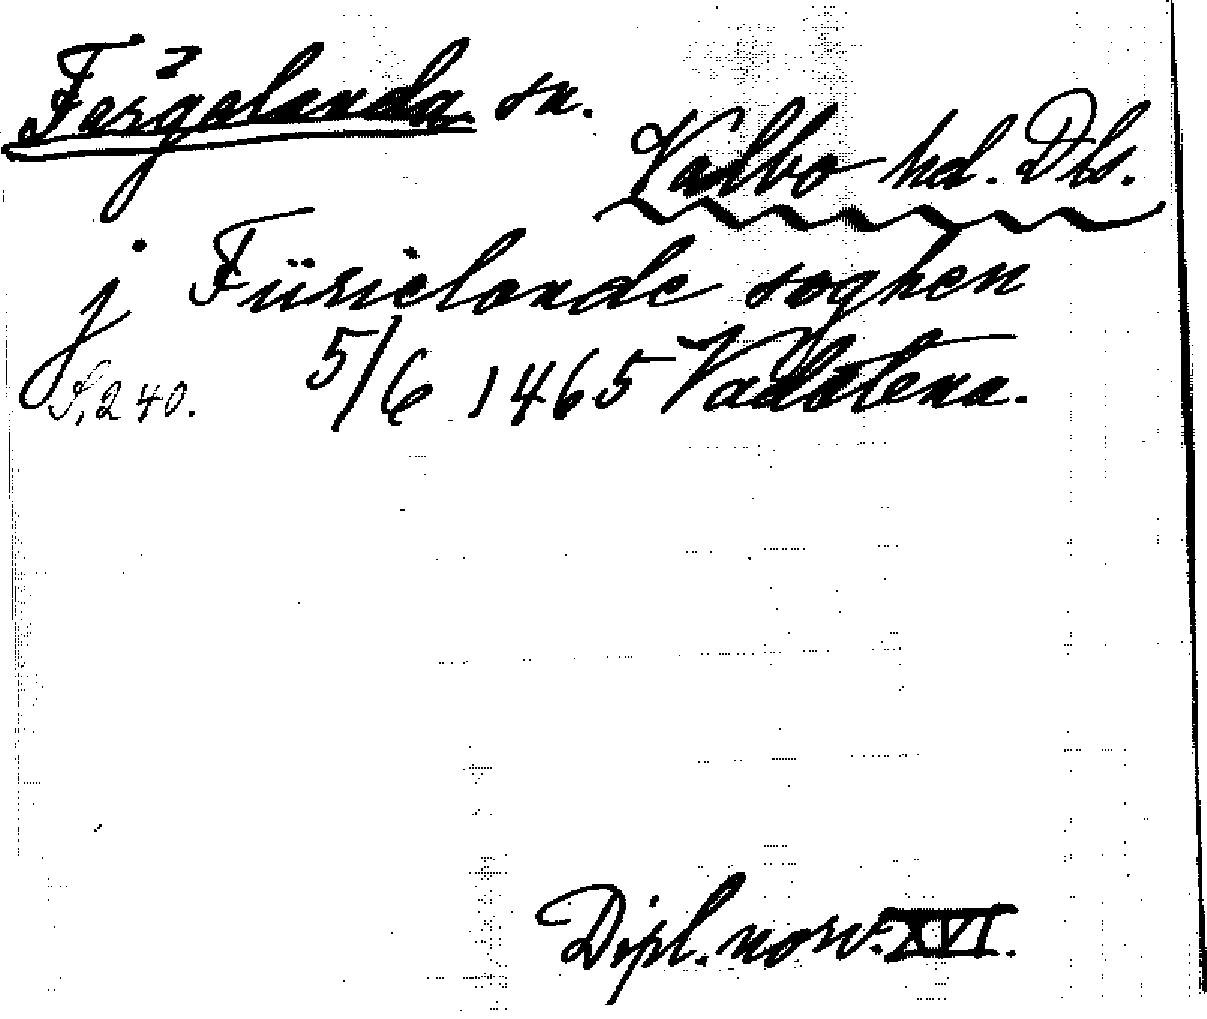 Färgelanda sn.
Valbo hd. Dls.
j Fürielande soghen
S. 240. 5/6 1465 Vadstena.
Dipl. norv. XVI.